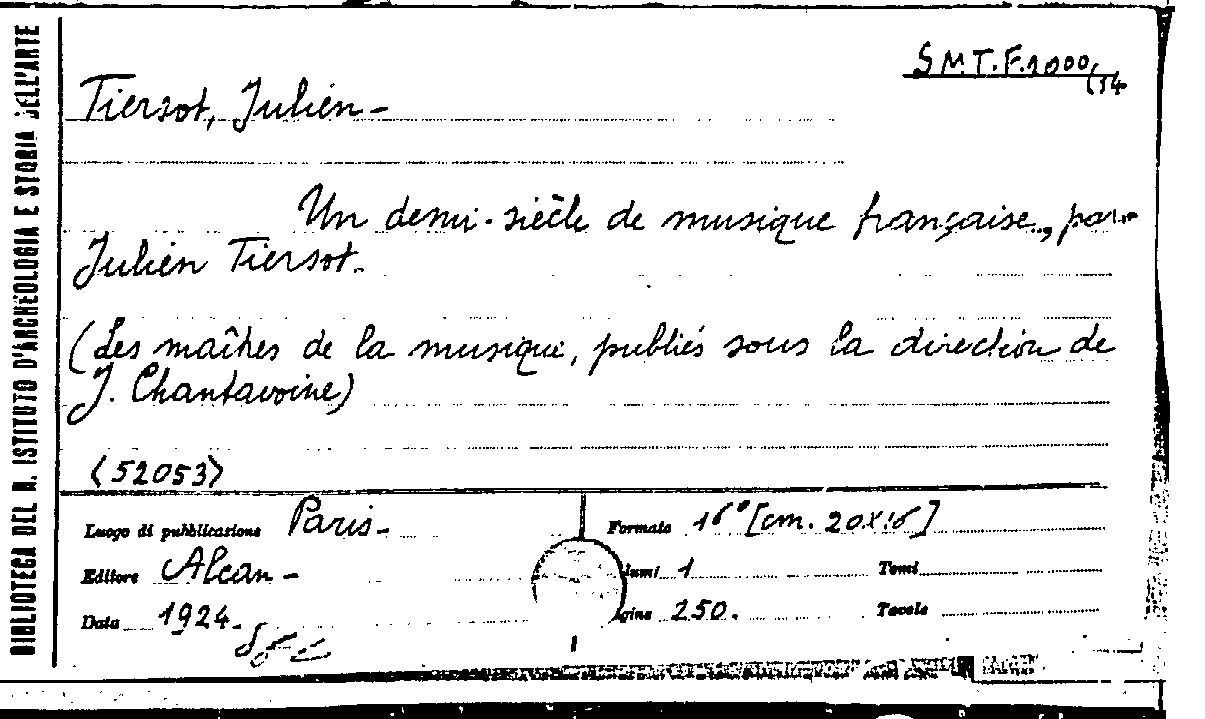 BIBLIOTECA DEL R. ISTITUTO D'ARCHEOLOGIA E STORIA DELL'ARTE
S.M.T.F.1000/54
Tiersot, Julien -
Un demi-siècle de musique française.., par
Julien Tiersot.
(Les maîtres de la musique, publiés sous la direction de
J. Chantavoine)
(52053)
Luogo di pubblicazione Paris -
Formato 16° [cm. 20x16]
Editore Alcan -
lumi 1
Tomi
Data 1924.
gine 250.
Tavole